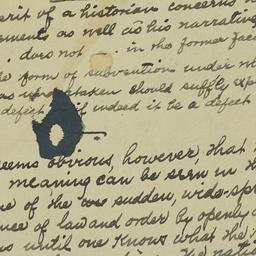 erit of a historian concerns
ements as well as his narrative
does not in the former
e form of subvention under
as undertaken should suffly
defect, if indeed it be a defect
eems obvious, however, that
meaning can be seen in th
e of the sudden, wide-spr
nce of law and order by openly
s until one knows what the